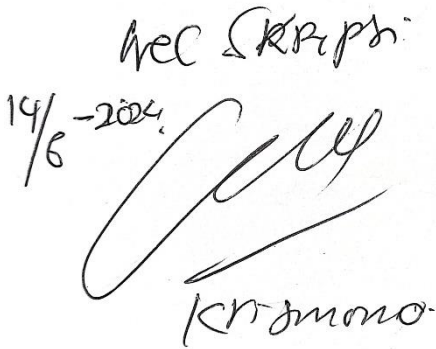 Acc SKRIpsi
14/6-2024
Krismono